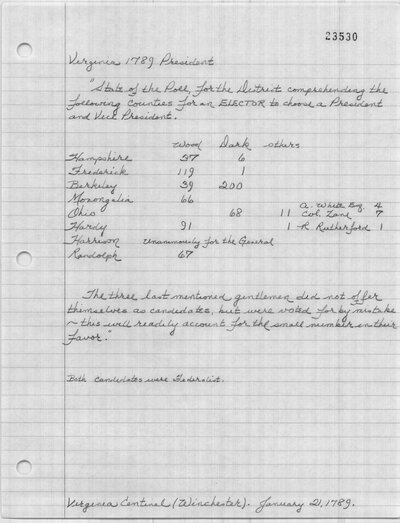 23530
Virginia 1789 President
"State of the Poll, for the District comprehending the
following Counties for an ELECTOR to choose a President
and Vice President.
Wood Dark others
Hampshire 57 6
Frederick 119 1
Berkeley 39 200
Monongalia 66
A. White Esq 4
Ohio 68 11 Col. Zane 7
Hardy 91 1 R Rutherford 1
Harrison unanimously for the General
Randolph 67
The three last mentioned gentlemen did not offer
themselves as candidates, but were voted for by mistake
~ this will readily account for the small number in their
favor."
Both candidates were Federalist.
Virginia Centinel (Winchester). January 21, 1789.